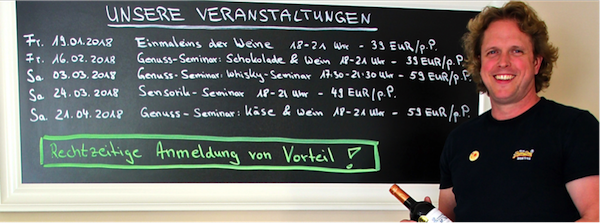 UNSERE VERANSTALTUNGEN
Fr. 19.01.2018 Einmaleins der Weine 18-21 Uhr - 39 EUR/p.P.
Fr. 16.02.2018 Genuss-Seminar: Schokolade & Wein 18-21 Uhr - 39 EUR/p.P.
Sa. 03.03.2018 Genuss-Seminar: Whisky-Seminar 17:30-21:30 Uhr - 59 EUR/p.P.
Sa. 24.03.2018 Sensorik-Seminar 18-21 Uhr - 49 EUR/p.P.
Sa. 21.04.2018 Genuss-Seminar: Käse & Wein 18-21 Uhr - 59 EUR/p.P.
Rechtzeitige Anmeldung von Vorteil!